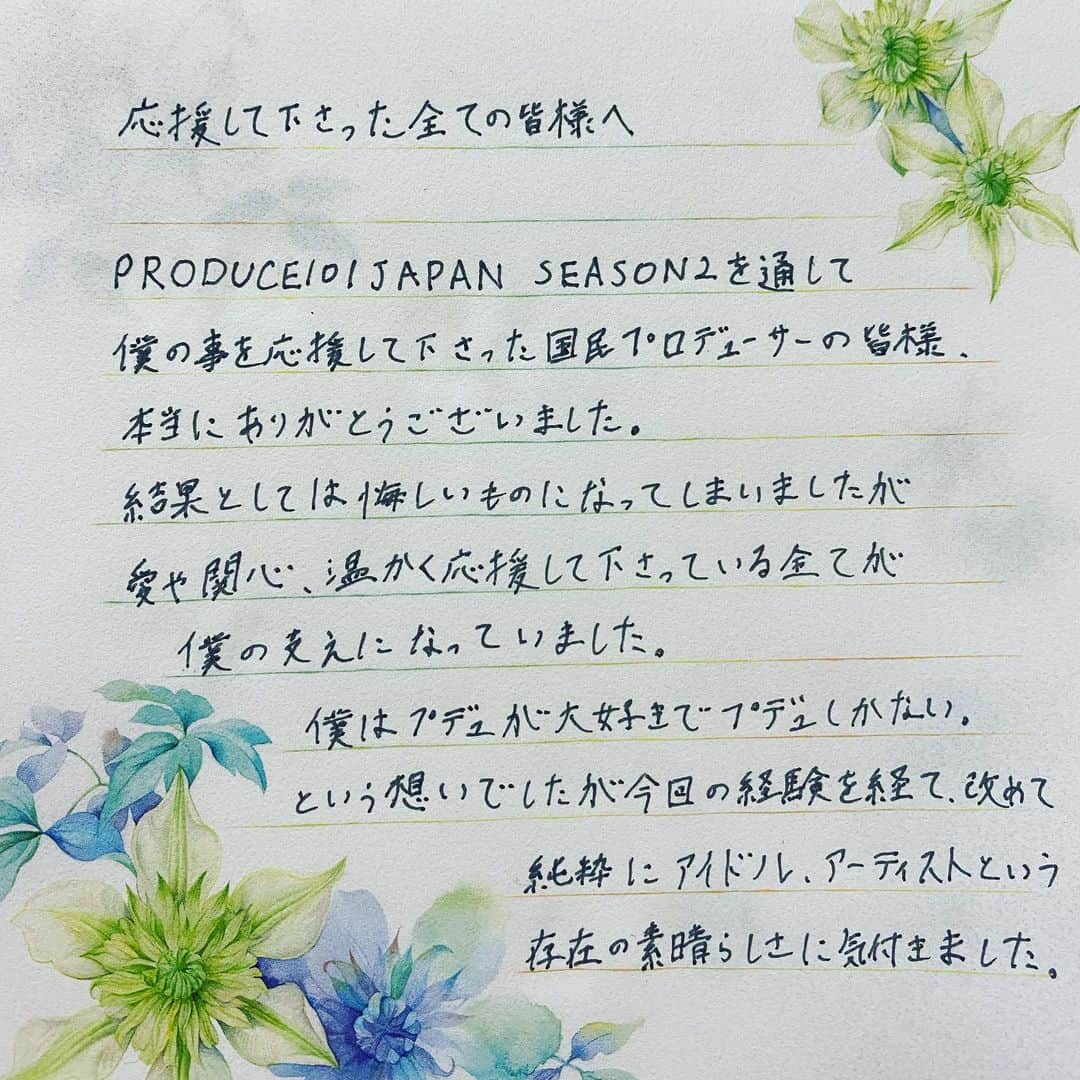 応援して下さった全ての皆様へ
PRODUCE101JAPAN SEASON2を通して
僕の事を応援して下さった国民プロデューサーの皆様、
本当にありがとうございました。
結果としては悔しいものになってしまいましたが
愛や関心、温かく応援して下さっている全てが
僕の支えになっていました。
僕はプデュが大好きでプデュしかない。
という想いでしたが今回の経験を経て、改めて
純粋にアイドル、アーティストという
存在の素晴らしさに気付きました。